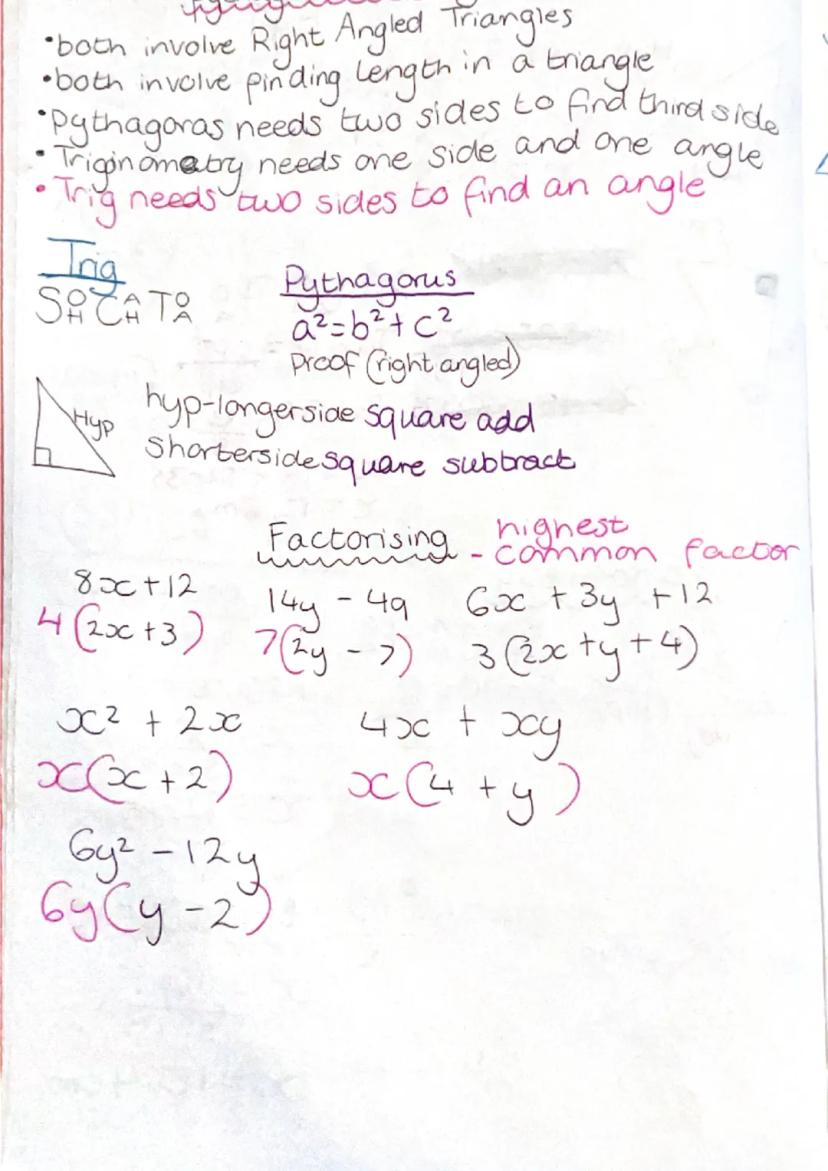 •both involve Right Angled Triangles
•both involve pinding length in a triangle
•pythagoras needs two sides to find third side
•Triginomeatry needs one side and one angle
•Trig needs two sides to find an angle
Trig
SOH CAH TOA
Pythagorus
a²=b²+c²
Proof (right angled)
Hyp
hyp-longerside square add
shorterside square subtract
Factorising - highest common factor
8x+12
4(2x+3)
14y - 49
7(2y - 7)
6x + 3y + 12
3(2x+y+4)
x² + 2x
x(x+2)
4x + xy
x(4 + y)
6y² - 12y
6y(y - 2)